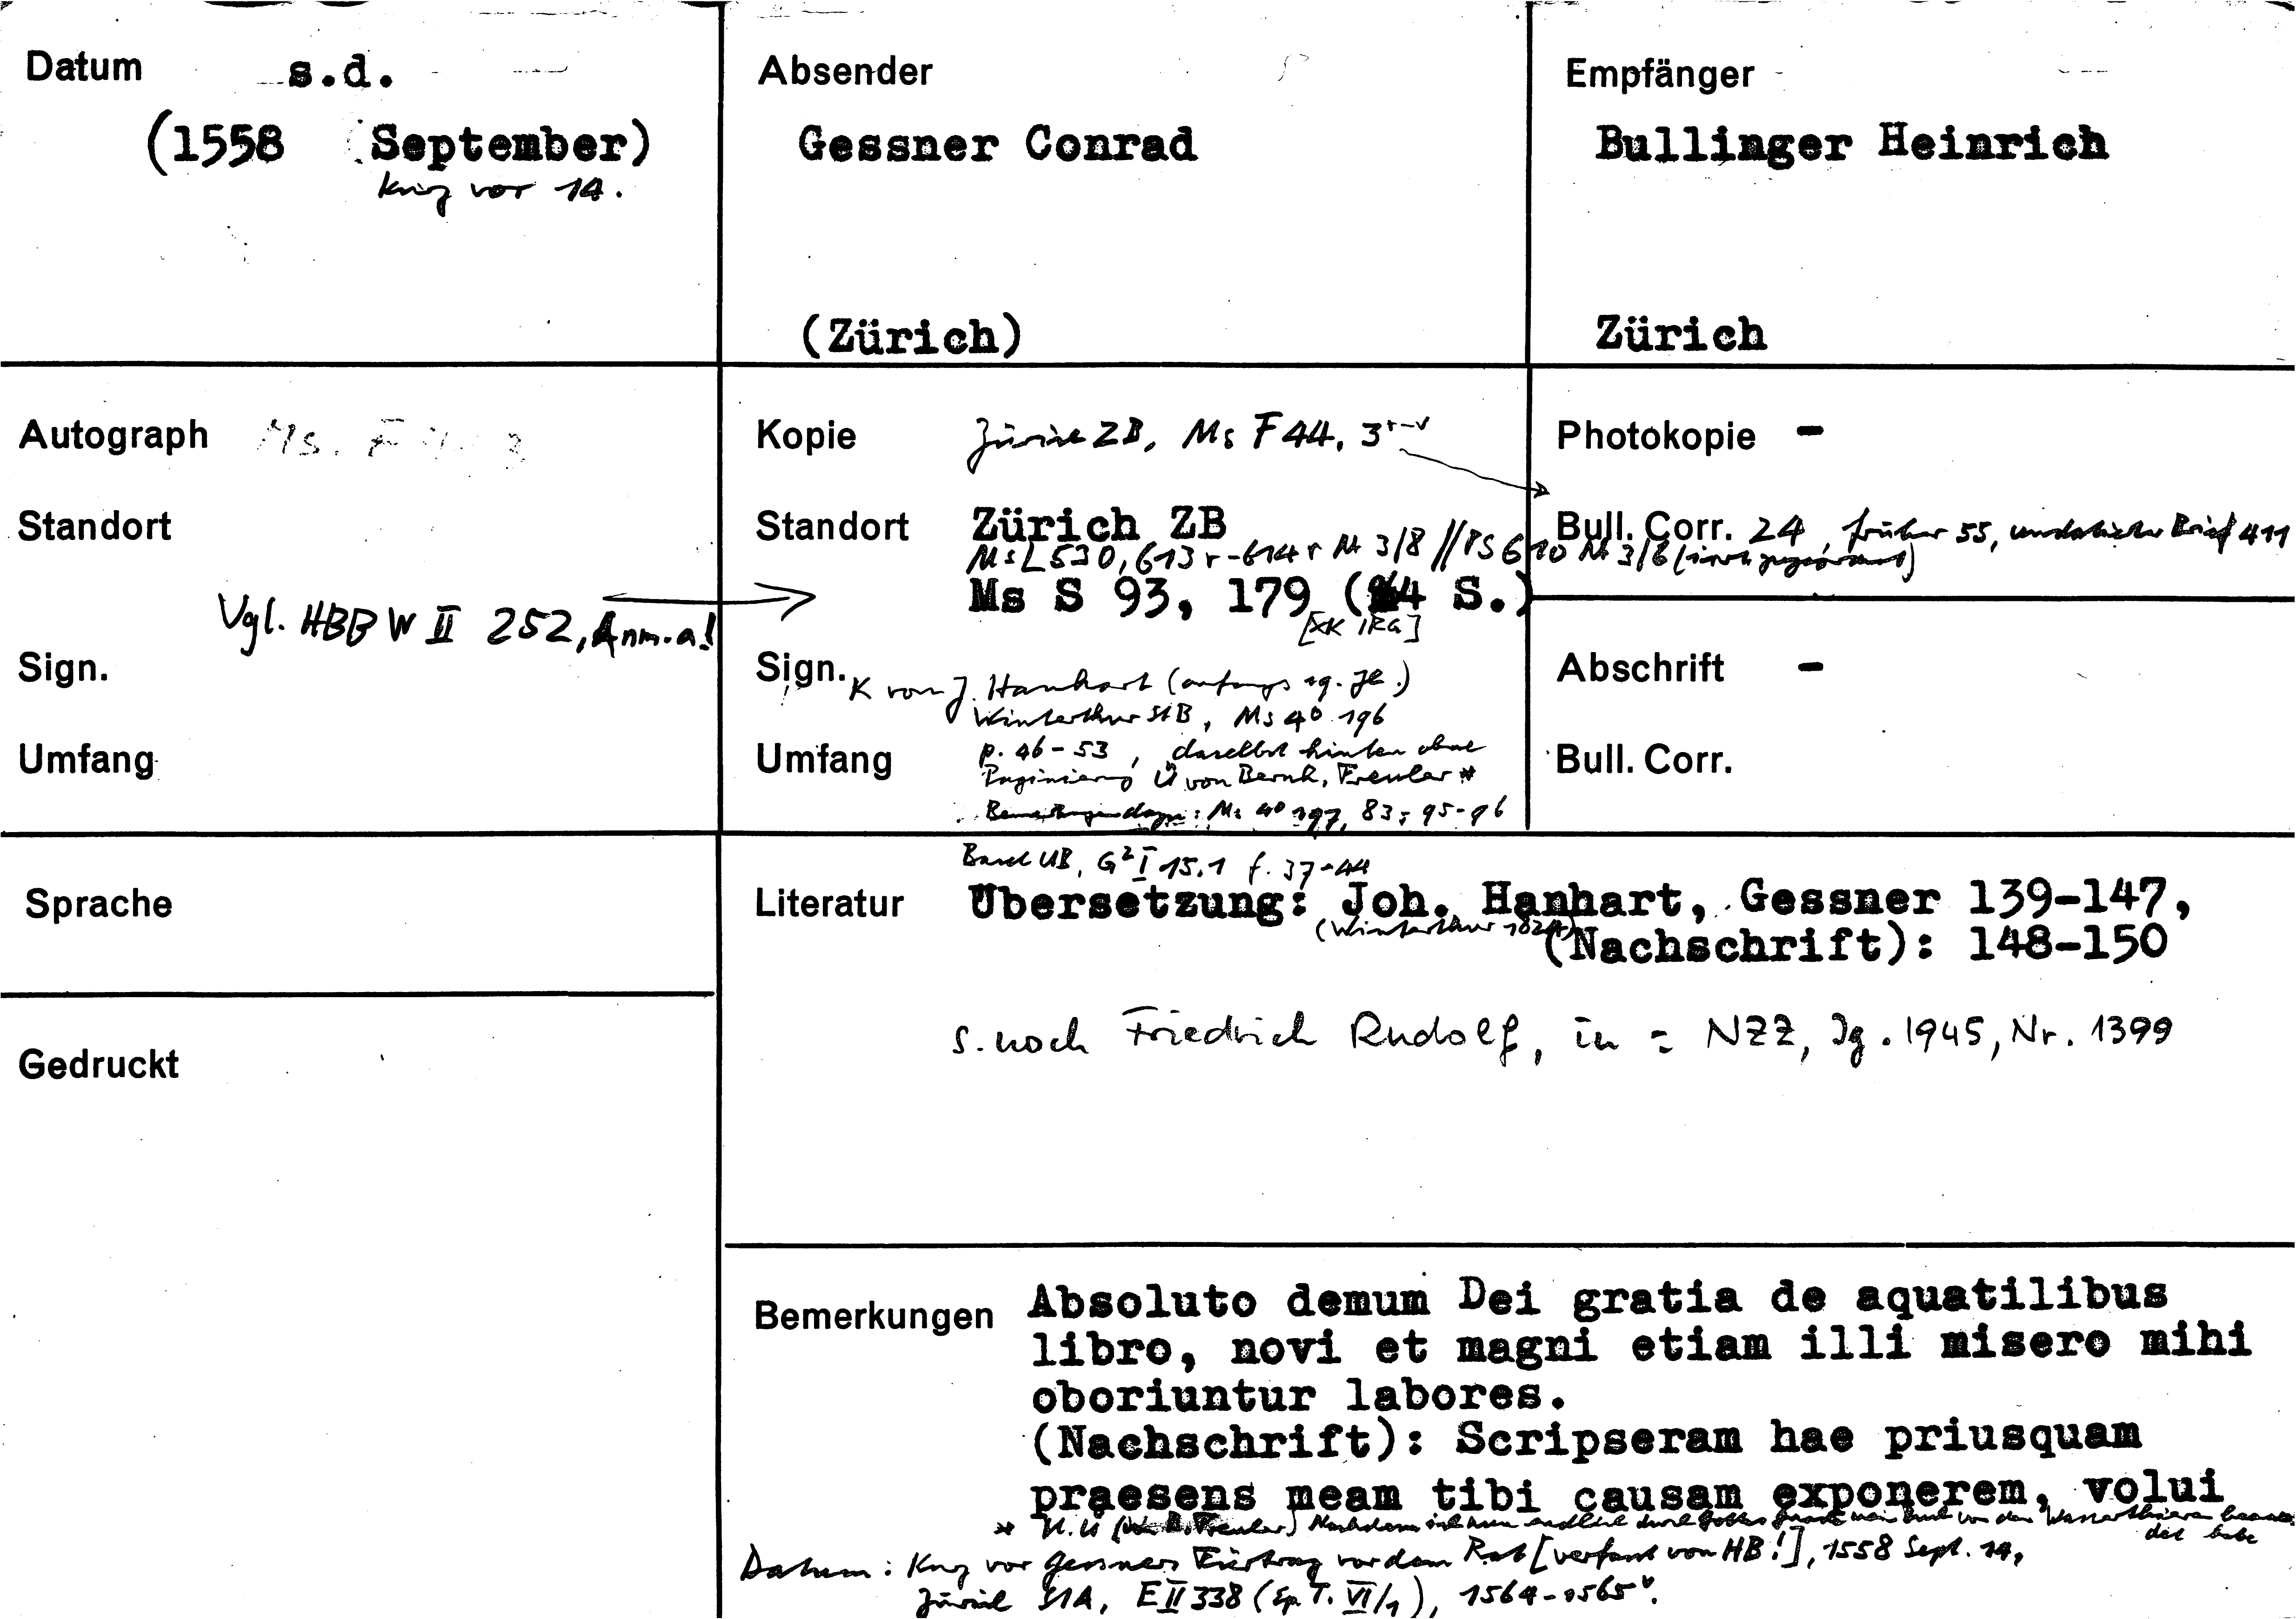 Datum s.d.
(1558 September)
kurz vor 14.
Absender
Gessner Conrad
(Zürich)
Empfänger
Bullinger Heinrich
Zürich
Autograph Ms. F
Standort
Vgl. HBBW II 252, Anm. a!
Sign.
Umfang
Kopie Zürich ZB, Ms F 44, 3r-v
Standort Zürich ZB
Ms L 530, 613r-614r Nr 3/8 // PS 610 Nr 3/6
Ms S 93, 179 (4 S.)
[XK IRG]
Sign. K von J. Hanhart (anfangs 19. Jh.)
Winterthur StB, Ms 4° 196
Umfang p. 46-53, daselbst hinten ohne
Paginierung Ü von Bernh. Freuler *
Bemerkungen dazu: Ms 4° 197, 83; 95-96
Photokopie -
Bull. Corr. 24, früher 55, undatierter Brief 411
Abschrift -
Bull. Corr.
Sprache
Gedruckt
Basel UB, G² I 15.1 f. 37-44
Literatur Übersetzung: Joh. Hanhart, Gessner 139-147,
(Winterthur 1824)
(Nachschrift): 148-150
s. noch Friedrich Rudolf, in: NZZ, Jg. 1945, Nr. 1399
Bemerkungen Absoluto demum Dei gratia de aquatilibus
libro, novi et magni etiam illi misero mihi
oboriuntur labores.
(Nachschrift): Scripseram hae priusquam
praesens meam tibi causam exponerem, volui
* Freuler) Nachdem ich nun endlich durch Gottes Gnade mein Buch von den Wasserthieren
det habe
Datum: Kurz vor Gessners Fürtrag vor dem Rat [verfasst von HB!], 1558 Sept. 14,
Zürich StA, E II 338 (Ep. T. VI/1), 1564-1565v.